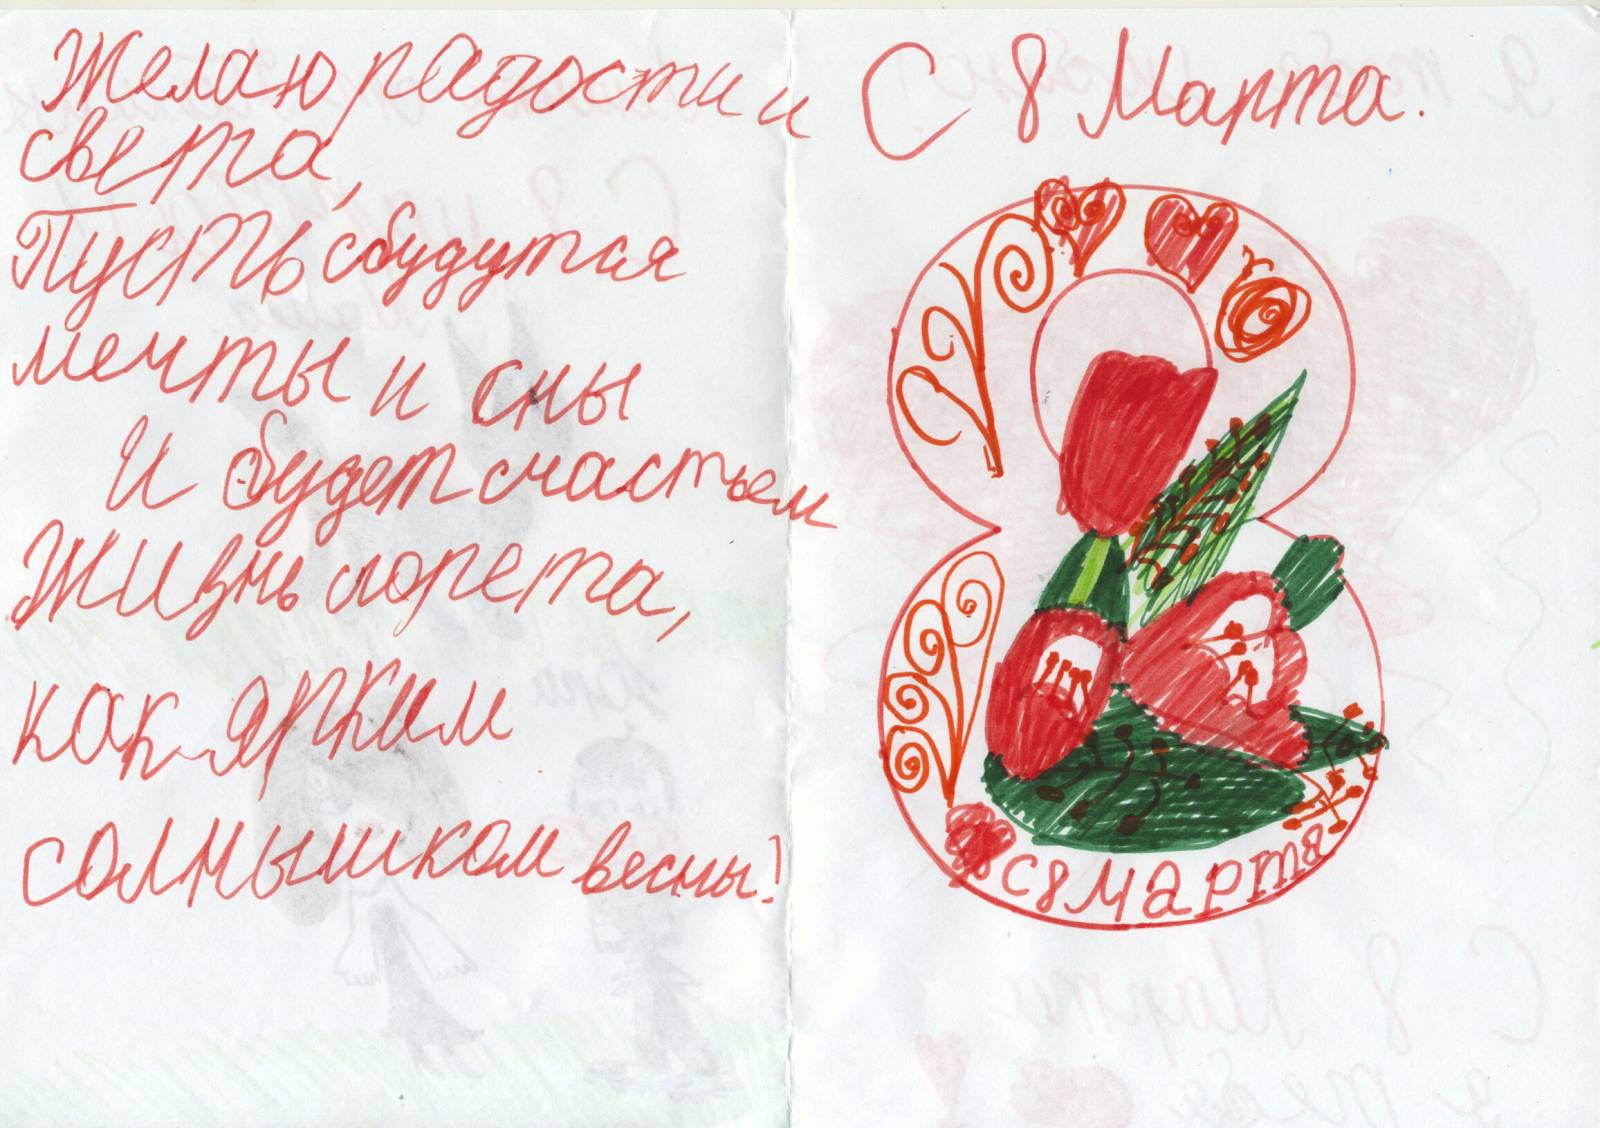 Желаю радости и
света,
Пусть сбудутся
мечты и сны
И будет счастьем
Жизнь согрета,
как ярким
солнышком весны!
С 8 Марта.
с 8 марта